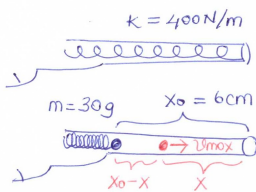 K = 400N/m
m=30g
x₀ = 6cm
→ υmax
x₀-x
x